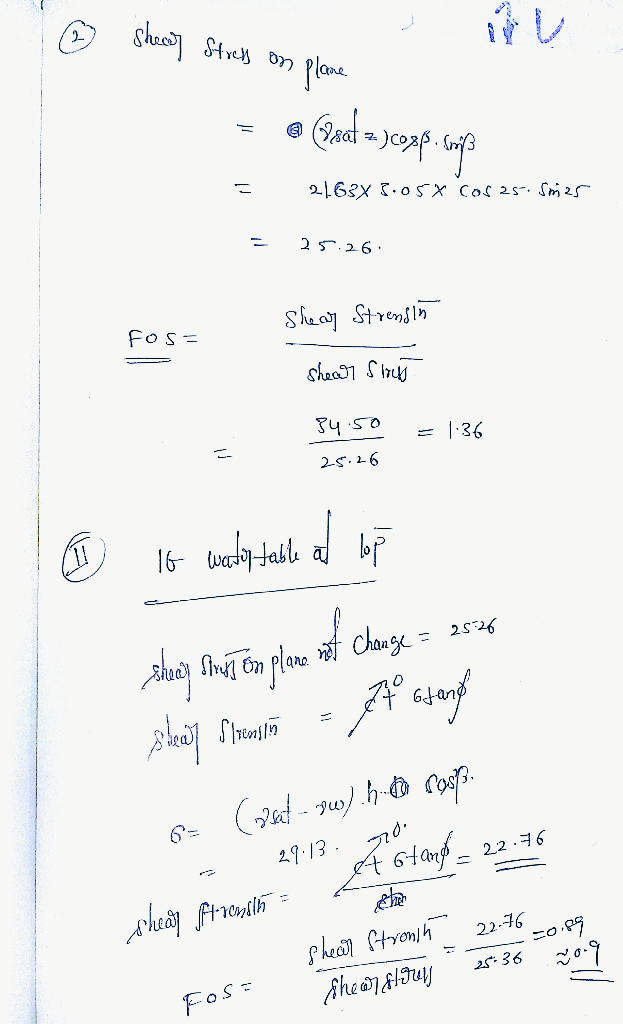 2 Shear Stress on plane
= (γsat z) cosβ. sinβ
= 21.63 X 3.05 X Cos 25. Sin 25
= 25.26.
FOS = Shear Strength
Shear Stress
= 34.50 = 1.36
25.26
II If water table at top
shear stress on plane not change = 25.26
shear strength = c+ σ tanϕ
σ = (γsat - γw) h cosβ.
= 29.13.
shear strength = c+ σ tanϕ = 22.76
FOS = shear strength = 22.76 = 0.89
shear stress 25.36 ≈ 0.9